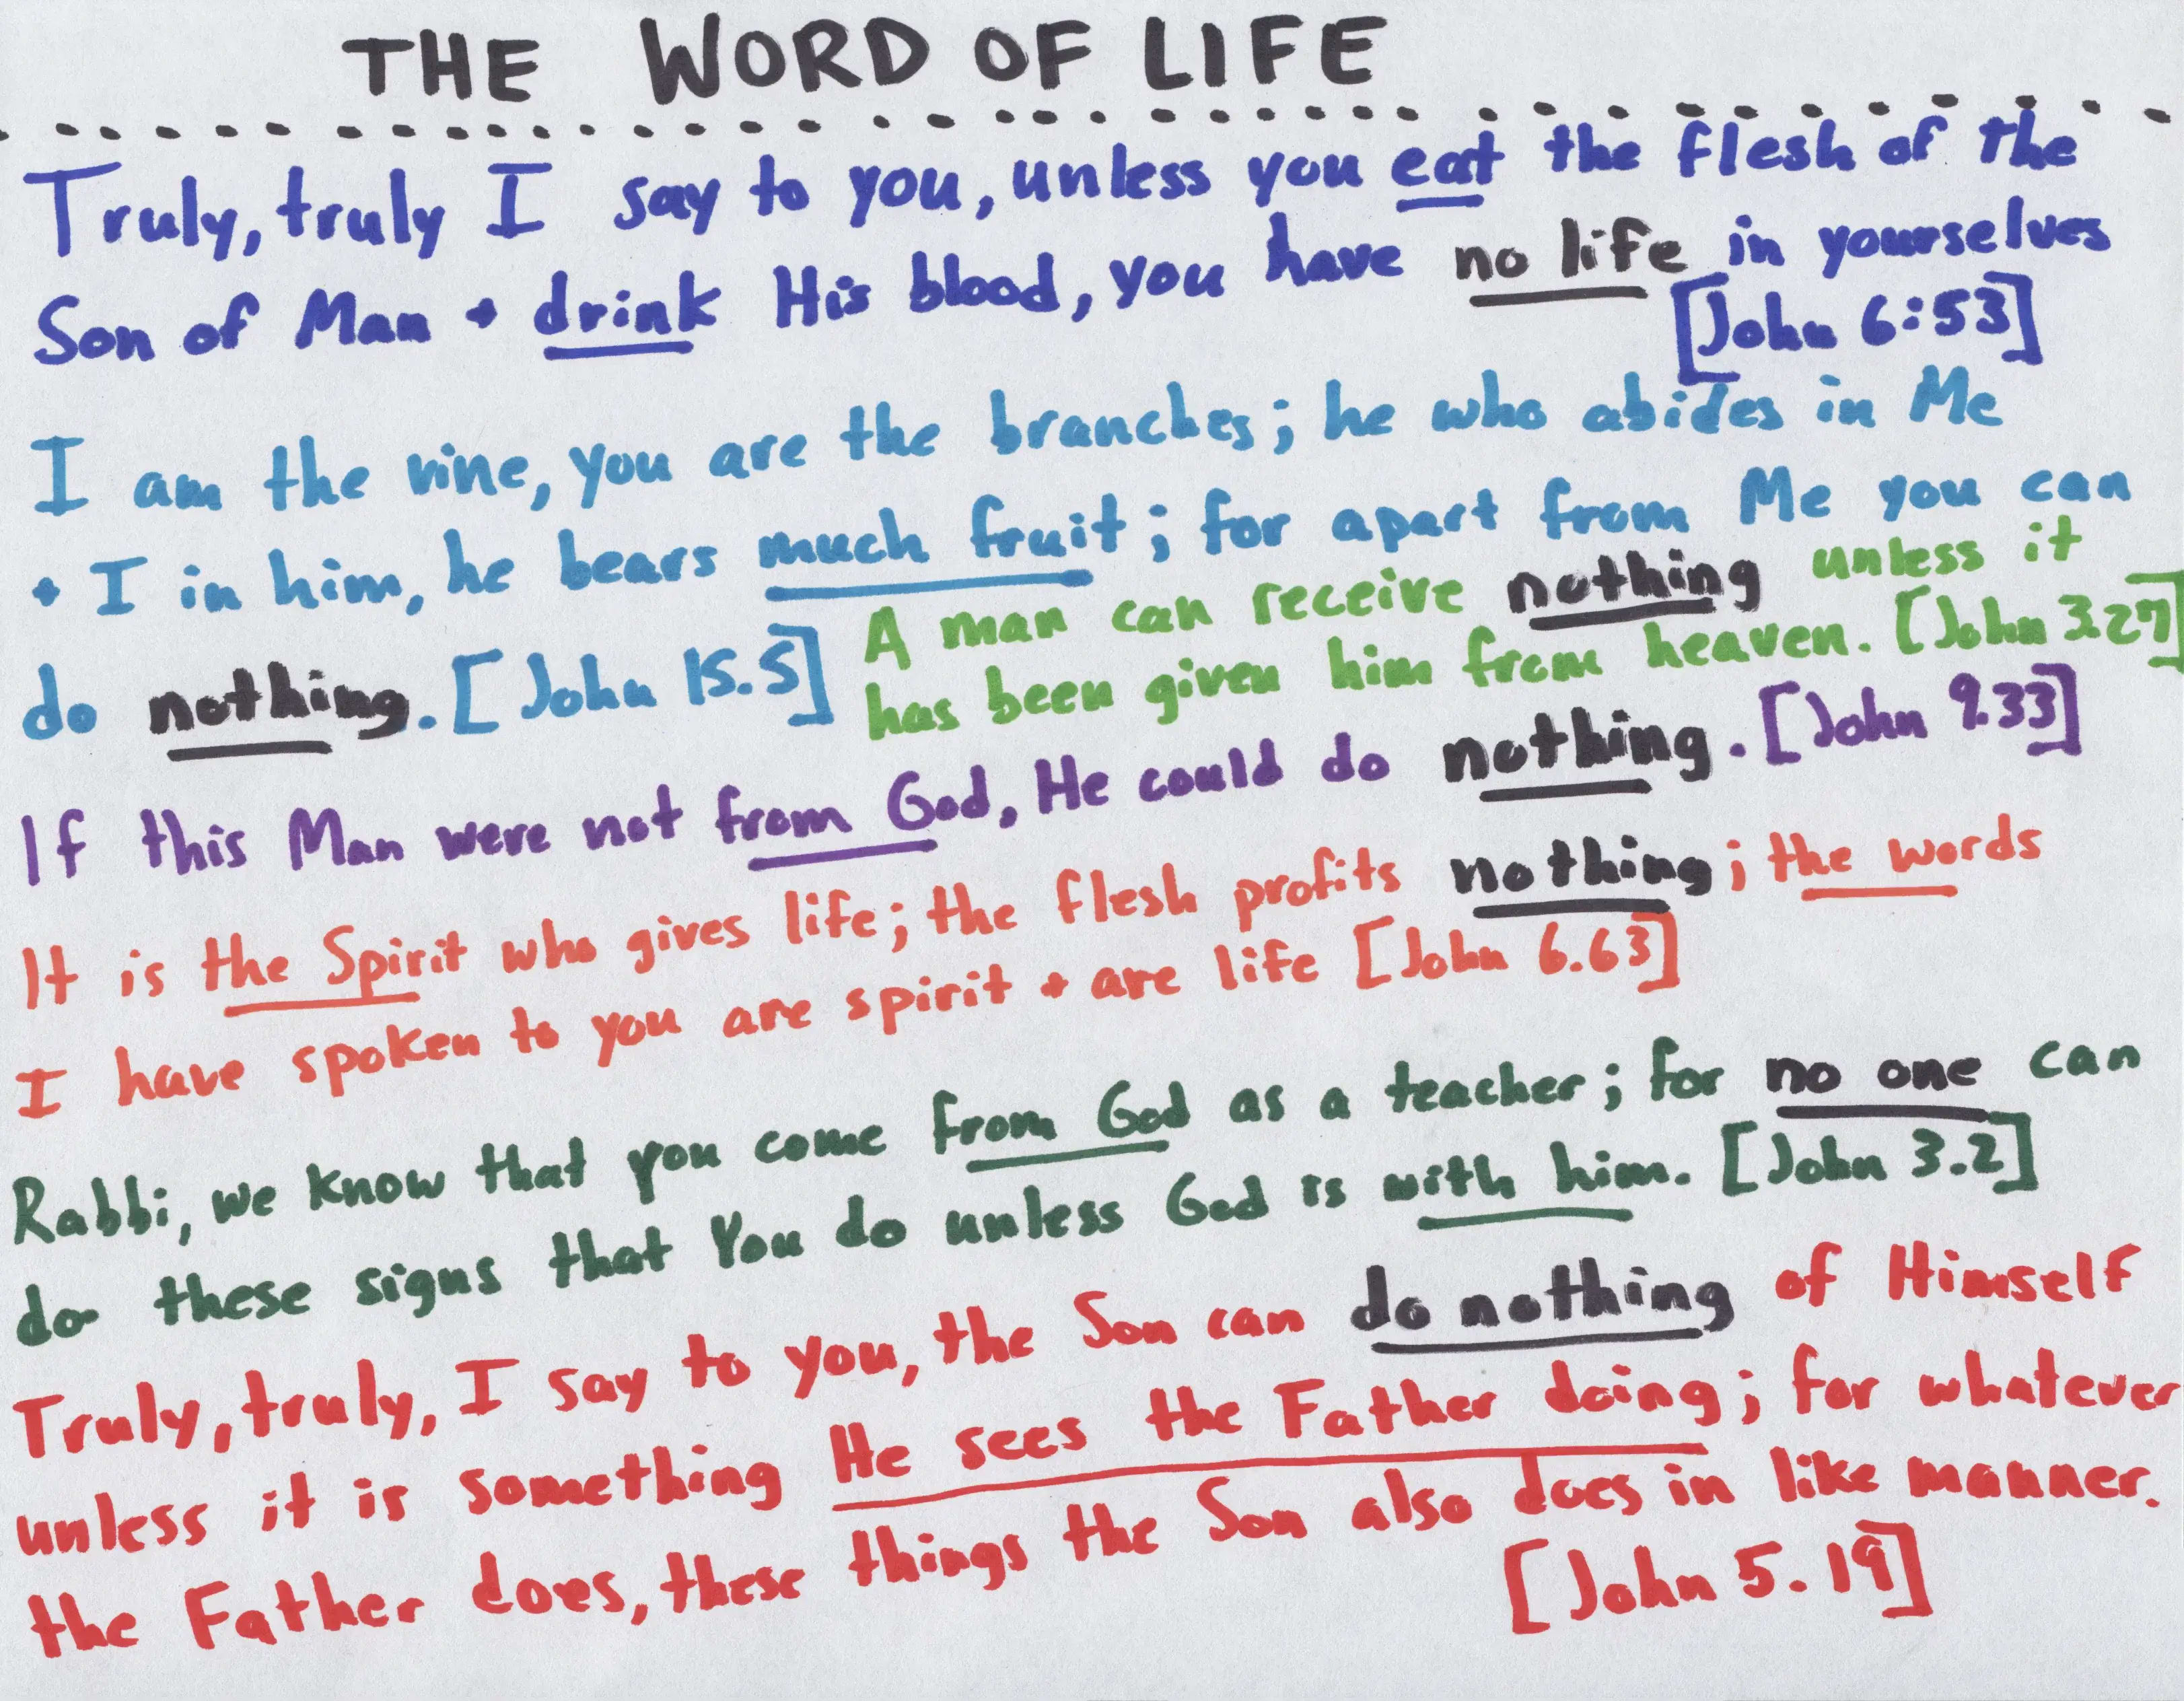 THE WORD OF LIFE
Truly, truly I say to you, unless you eat the flesh of the
Son of Man + drink His blood, you have no life in yourselves
[John 6:53]
I am the vine, you are the branches; he who abides in Me
+ I in him, he bears much fruit; for apart from Me you can
do nothing. [John 15.5]
A man can receive nothing unless it
has been given him from heaven. [John 3.27]
If this Man were not from God, He could do nothing. [John 9.33]
It is the Spirit who gives life; the flesh profits nothing; the words
I have spoken to you are spirit + are life [John 6.63]
Rabbi, we know that you come from God as a teacher; for no one can
do these signs that You do unless God is with him. [John 3.2]
Truly, truly, I say to you, the Son can do nothing of Himself
unless it is something He sees the Father doing; for whatever
the Father does, these things the Son also does in like manner.
[John 5.19]